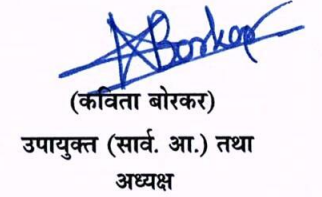 ABorkar
(कविता बोरकर)
उपायुक्त (सार्व. आ.) तथा
अध्यक्ष